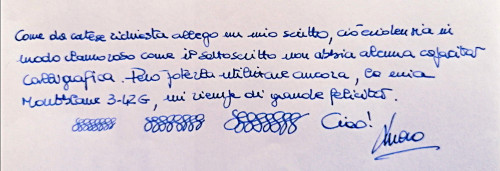 Come da cortese richiesta allego un mio scritto, ciò evidenzia in
modo clamoroso come il sottoscritto non abbia alcuna capacità
calligrafica. Però poterla utilizzare ancora, la mia
Montblanc 3-42G, mi riempie di grande felicità.
Ciao!